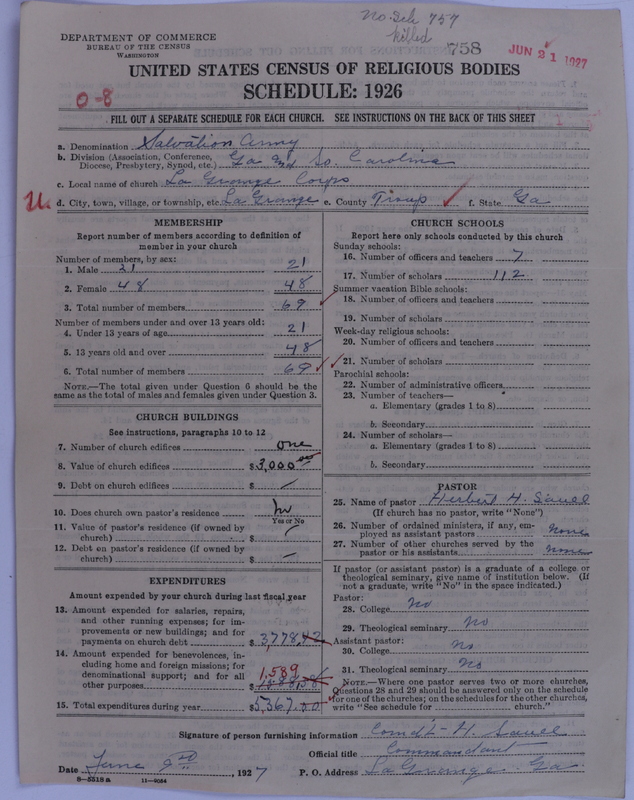 No. Sch 757
killed
758
JUN 21 1927
DEPARTMENT OF COMMERCE
BUREAU OF THE CENSUS
WASHINGTON
UNITED STATES CENSUS OF RELIGIOUS BODIES
SCHEDULE: 1926
0-8
FILL OUT A SEPARATE SCHEDULE FOR EACH CHURCH. SEE INSTRUCTIONS ON THE BACK OF THIS SHEET
a. Denomination Salvation Army
b. Division (Association, Conference, Diocese, Presbytery, Synod, etc.) Ga and So. Carolina
c. Local name of church La Grange Corps
U. d. City, town, village, or township, etc. La Grange e. County Troup f. State Ga
MEMBERSHIP
Report number of members according to definition of
member in your church
Number of members, by sex:
1. Male 21 21
2. Female 48 48
3. Total number of members 69
Number of members under and over 13 years old:
4. Under 13 years of age 21
5. 13 years old and over 48
6. Total number of members 69
NOTE.—The total given under Question 6 should be
same as the total of males and females given under Question 3.
CHURCH BUILDINGS
See instructions, paragraphs 10 to 12
7. Number of church edifices one
8. Value of church edifices $3,000.00
9. Debt on church edifices $ —
10. Does church own pastor's residence? no
Yes or No
11. Value of pastor's residence (if owned by
church) $ —
12. Debt on pastor's residence (if owned by
church) $ —
EXPENDITURES
Amount expended by your church during last fiscal year
13. Amount expended for salaries, repairs,
and other running expenses; for im-
provements or new buildings; and for
payments on church debt $ 3,778.42
14. Amount expended for benevolences, in-
cluding home and foreign missions; for
denominational support; and for all
1,589
other purposes $
15. Total expenditures during year $5,367.00
CHURCH SCHOOLS
Report here only schools conducted by this church
Sunday schools:
16. Number of officers and teachers 7
17. Number of scholars 112
Summer vacation Bible schools:
18. Number of officers and teachers
19. Number of scholars
Week-day religious schools:
20. Number of officers and teachers
21. Number of scholars
Parochial schools:
22. Number of administrative officers
23. Number of teachers—
a. Elementary (grades 1 to 8)
b. Secondary
24. Number of scholars—
a. Elementary (grades 1 to 8)
b. Secondary
PASTOR
25. Name of pastor Herbert H. Sauls
(If church has no pastor, write "None")
26. Number of ordained ministers, if any, em-
ployed as assistant pastors none
27. Number of other churches served by the
pastor or his assistants none
If pastor (or assistant pastor) is a graduate of a college or
theological seminary, give name of institution below. (If
not a graduate, write "No" in the space indicated.)
Pastor:
28. College No
29. Theological seminary No
Assistant pastor:
30. College No
31. Theological seminary No
NOTE.—Where one pastor serves two or more churches,
Questions 28 and 29 should be answered only on the schedule
for one of the churches; on the schedules for the other churches,
write "See schedule for church."
Signature of person furnishing information Comd't H. Sauls
Official title Commandant
Date June 9, 1927 P. O. Address La Grange. Ga.
8—5518 a 11—9054